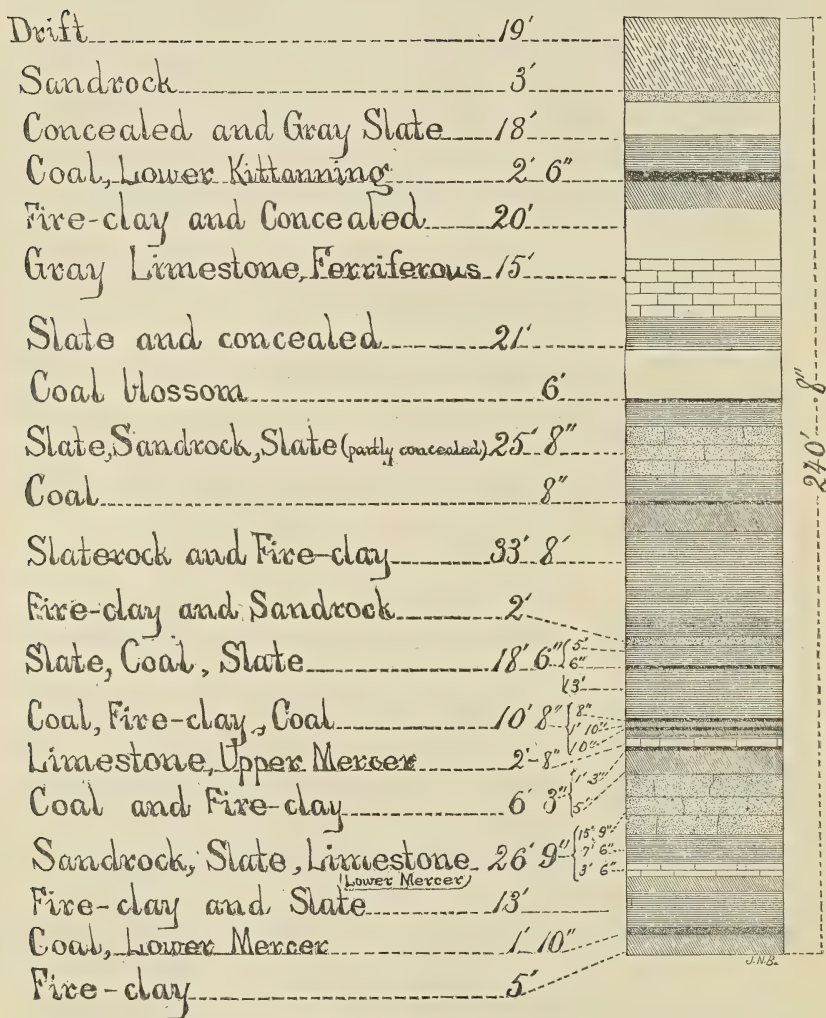 Drift 19'
Sandrock 3'
Concealed and Gray Slate 18'
Coal, Lower Kittanning 2' 6"
Fire-clay and Concealed 20'
Gray Limestone, Ferriferous 15'
Slate and concealed 21'
Coal blossom 6'
Slate, Sandrock, Slate (partly concealed) 25' 8"
Coal 8"
Slaterock and Fire-clay 33' 8'
Fire-clay and Sandrock 2'
Slate, Coal, Slate 18' 6" 5' 6" 13'
Coal, Fire-clay, Coal 10' 8" 8" 1' 10" 10"
Limestone, Upper Mercer 2'-8"
Coal and Fire-clay 6' 3" 1' 3" 5'
Sandrock, Slate, Limestone 26' 9" 15' 9" 7' 6" 3' 6"
(Lower Mercer)
Fire-clay and Slate 13'
Coal, Lower Mercer 1' 10"
Fire-clay 5'
240' 8"
J.N.B.